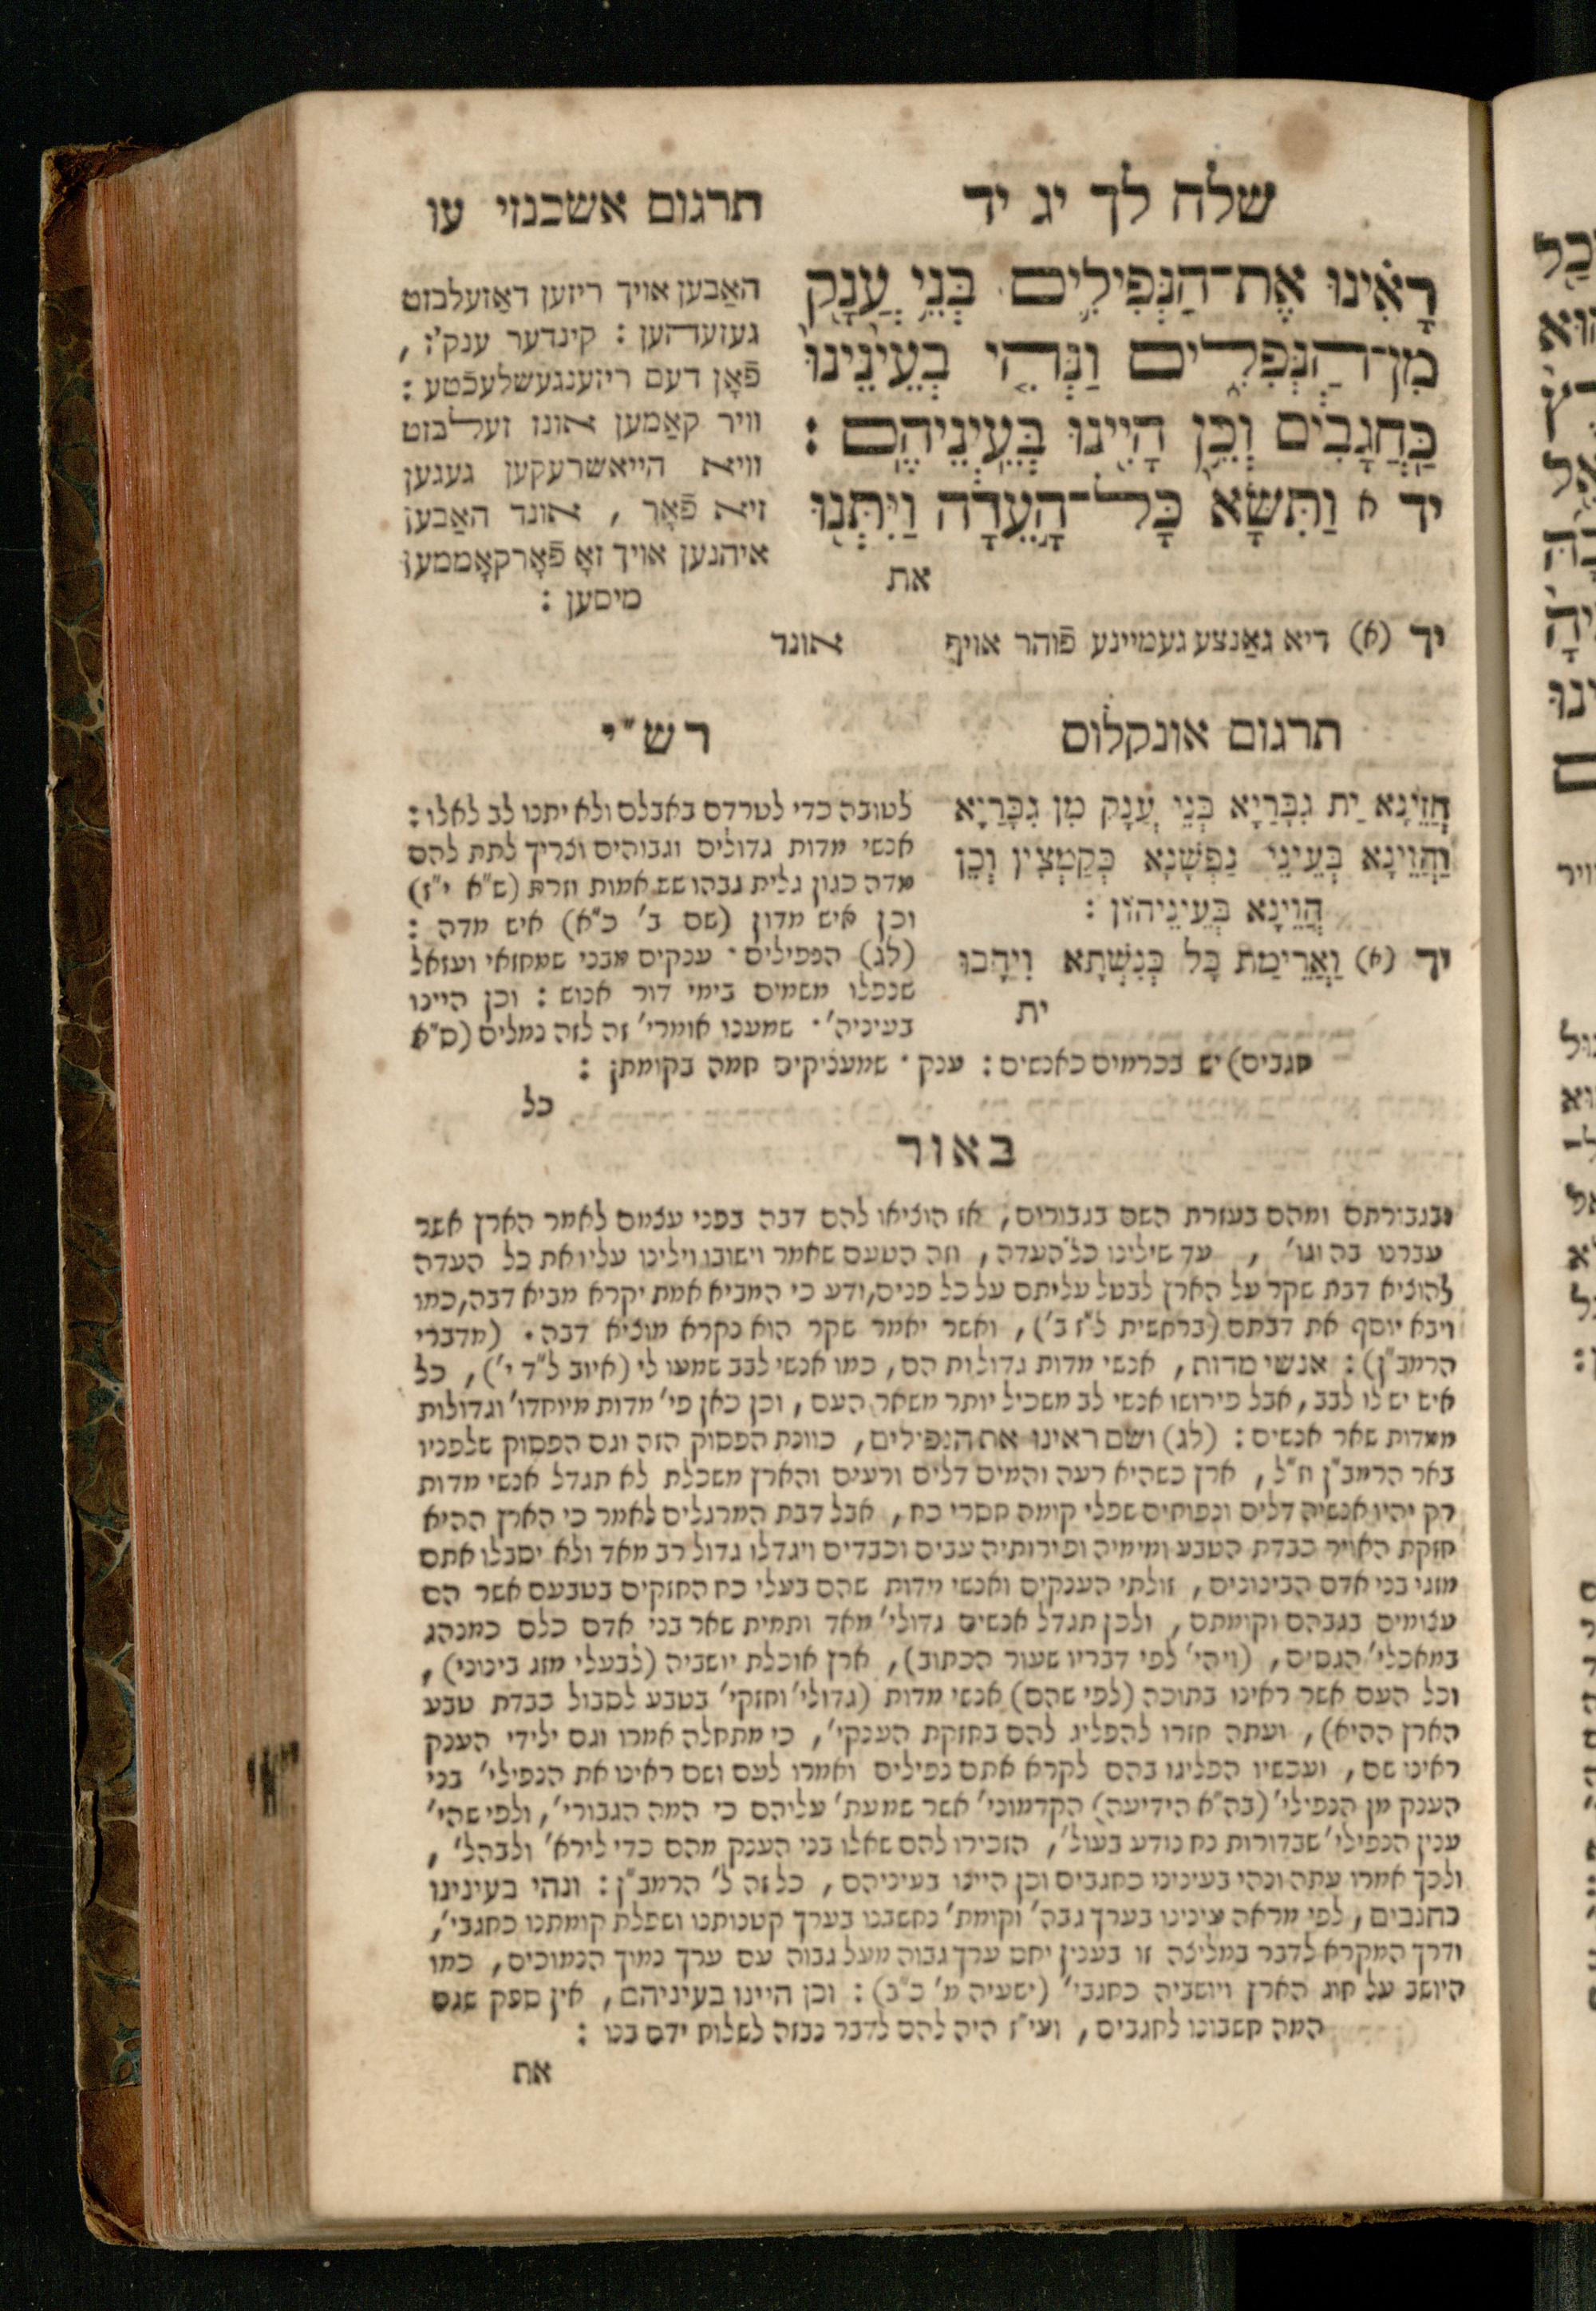 שלח לך יג יד
תרגום אשכנזי עו
רָאִ֗ינוּ אֶת־הַנְּפִילִ֛ים בְּנֵ֥י עֲנָ֖ק
מִן־הַנְּפִלִ֑ים וַנְּהִ֤י בְעֵינֵ֙ינוּ֙
כַּֽחֲגָבִ֔ים וְכֵ֥ן הָיִ֖ינוּ בְּעֵֽינֵיהֶֽם :
יד א וַתִּשָּׂא֙ כָּל־הָ֣עֵדָ֔ה וַֽיִּתְּנ֖וּ
את
האַבען אויך ריזען דאַזעלבזט
געזעהען : קינדער ענק'ז ,
פֿאָן דעם ריזענגעשלעכטע :
וויר קאַמען אונז זעלבזט
וויא הייאשרעקען געגען
זיא פֿאָר , אונד האַבען
איהנען אויך זאָ פֿאָרקאָממען
מיסען :
יד (א) דיא גאַנצע געמיינע פֿוהר אויף
אונד
תרגום אונקלוס
חֲזֵינָא יַת גִּבָּרַיָּא בְּנֵי עֲנָק מִן גִּבָּרַיָּא
וַהֲוֵינָא בְּעֵינֵי נַפְשָׁנָא כְּקַמְצִין וְכֵן
הֲוֵינָא בְּעֵינֵיהוֹן :
יד (א) וַאֲרֵימַת כָּל כְּנִשְׁתָּא וִיהָבוּ
ית
רש״י
לטובה כדי לטרדם באבלם ולא יתנו לב לאלו :
אנשי מדות גדולים וגבוהים וצריך לתת להם
מדה כגון גלית גבהו שש אמות וזרת (ש״א י״ז)
וכן איש מדון (שם ב' כ״א) איש מדה :
(לג) הנפילים · ענקים מבני שמחזאי ועזאל
שנפלו משמים בימי דור אנוש : וכן היינו
בעיניה' · שמענו אומרי' זה לזה נמלים (ס״א
חגבים) יש בכרמים כאנשים : ענק · שמעניקים חמה בקומתן :
כל
באור
ובגבורתם ומהם בעזרת השם בגבורים, אז הוציאו להם דבה בפני עצמם לאמר הארץ אשר
עברנו בה וגו' , עד שילינו כל העדה, וזה הטעם שאמר וישובו וילינו עליו את כל העדה
להוציא דבת שקר על הארץ לבטל עליתם על כל פנים, ודע כי המביא אמת יקרא מביא דבה, כמו
ויבא יוסף את דבתם (בראשית ל״ז ב'), ואשר יאמר שקר הוא נקרא מוציא דבה. (מדברי
הרמב״ן) : אנשי מדות, אנשי מדות גדולות הם, כמו אנשי לבב שמעו לי (איוב ל״ד י'), כל
איש יש לו לבב, אבל פירושו אנשי לב משכיל יותר משאר העם, וכן כאן פי' מדות מיוחדו' וגדולות
ממדות שאר אנשים : (לג) ושם ראינו את הנפילים, כוונת הפסוק הזה וגם הפסוק שלפניו
באר הרמב״ן וז״ל, ארץ כשהיא רעה והמים דלים ורעים והארץ משכלת לא תגדל אנשי מדות
רק יהיו אנשיה דלים ונפוחים שפלי קומה חסרי כח, אבל דבת המרגלים לאמר כי הארץ ההיא
חזקת האויר כבדת הטבע ומימיה ופירותיה עבים וכבדים ויגדלו גדול רב מאד ולא יסבלו אתם
מזגי בני אדם הבינונים, זולתי הענקים ואנשי מדות שהם בעלי כח החזקים בטבעם אשר הם
עצומים בגבהם וקומתם, ולכן תגדל אנשים גדולי' מאד ותמית שאר בני אדם כלם כמנהג
במאכלי' הגסים, (ויהי' לפי דבריו שעור הכתוב), ארץ אוכלת יושביה (לבעלי מזג בינוני),
וכל העם אשר ראינו בתוכה (לפי שהם) אנשי מדות (גדולי' וחזקי' בטבע לסבול כבדת טבע
הארץ ההיא), ועתה חזרו להפליג להם בחזקת הענקי', כי מתחלה אמרו וגם ילידי הענק
ראינו שם, ועכשיו הפליגו בהם לקרא אתם נפילים ואמרו לעם ושם ראינו את הנפילי' בני
הענק מן הנפילי' (בה״א הידיעה) הקדמוני' אשר שמעת' עליהם כי המה הגבורי', ולפי שהי'
ענין הנפילי' שבדורות נח נודע בעול', הזכירו להם שאלו בני הענק מהם כדי לירא' ולבהל',
ולכך אמרו עתה ונהי בעינינו כחגבים וכן היינו בעיניהם, כל זה ל' הרמב״ן : ונהי בעינינו
כחגבים, לפי מראה עינינו בערך גבה' וקומת' נחשבנו בערך קטנותנו ושפלת קומתנו כחגבי',
ודרך המקרא לדבר במליצה זו בענין יחס ערך גבוה מעל גבוה עם ערך נמוך הנמוכים, כמו
היושב על חוג הארץ ויושביה כחגבי' (ישעיה מ' כ״ב) : וכן היינו בעיניהם, אין ספק שגם
המה חשבונו לחגבים, ועי״ז היה להם לדבר נבזה לשלוח ידם בנו :
את